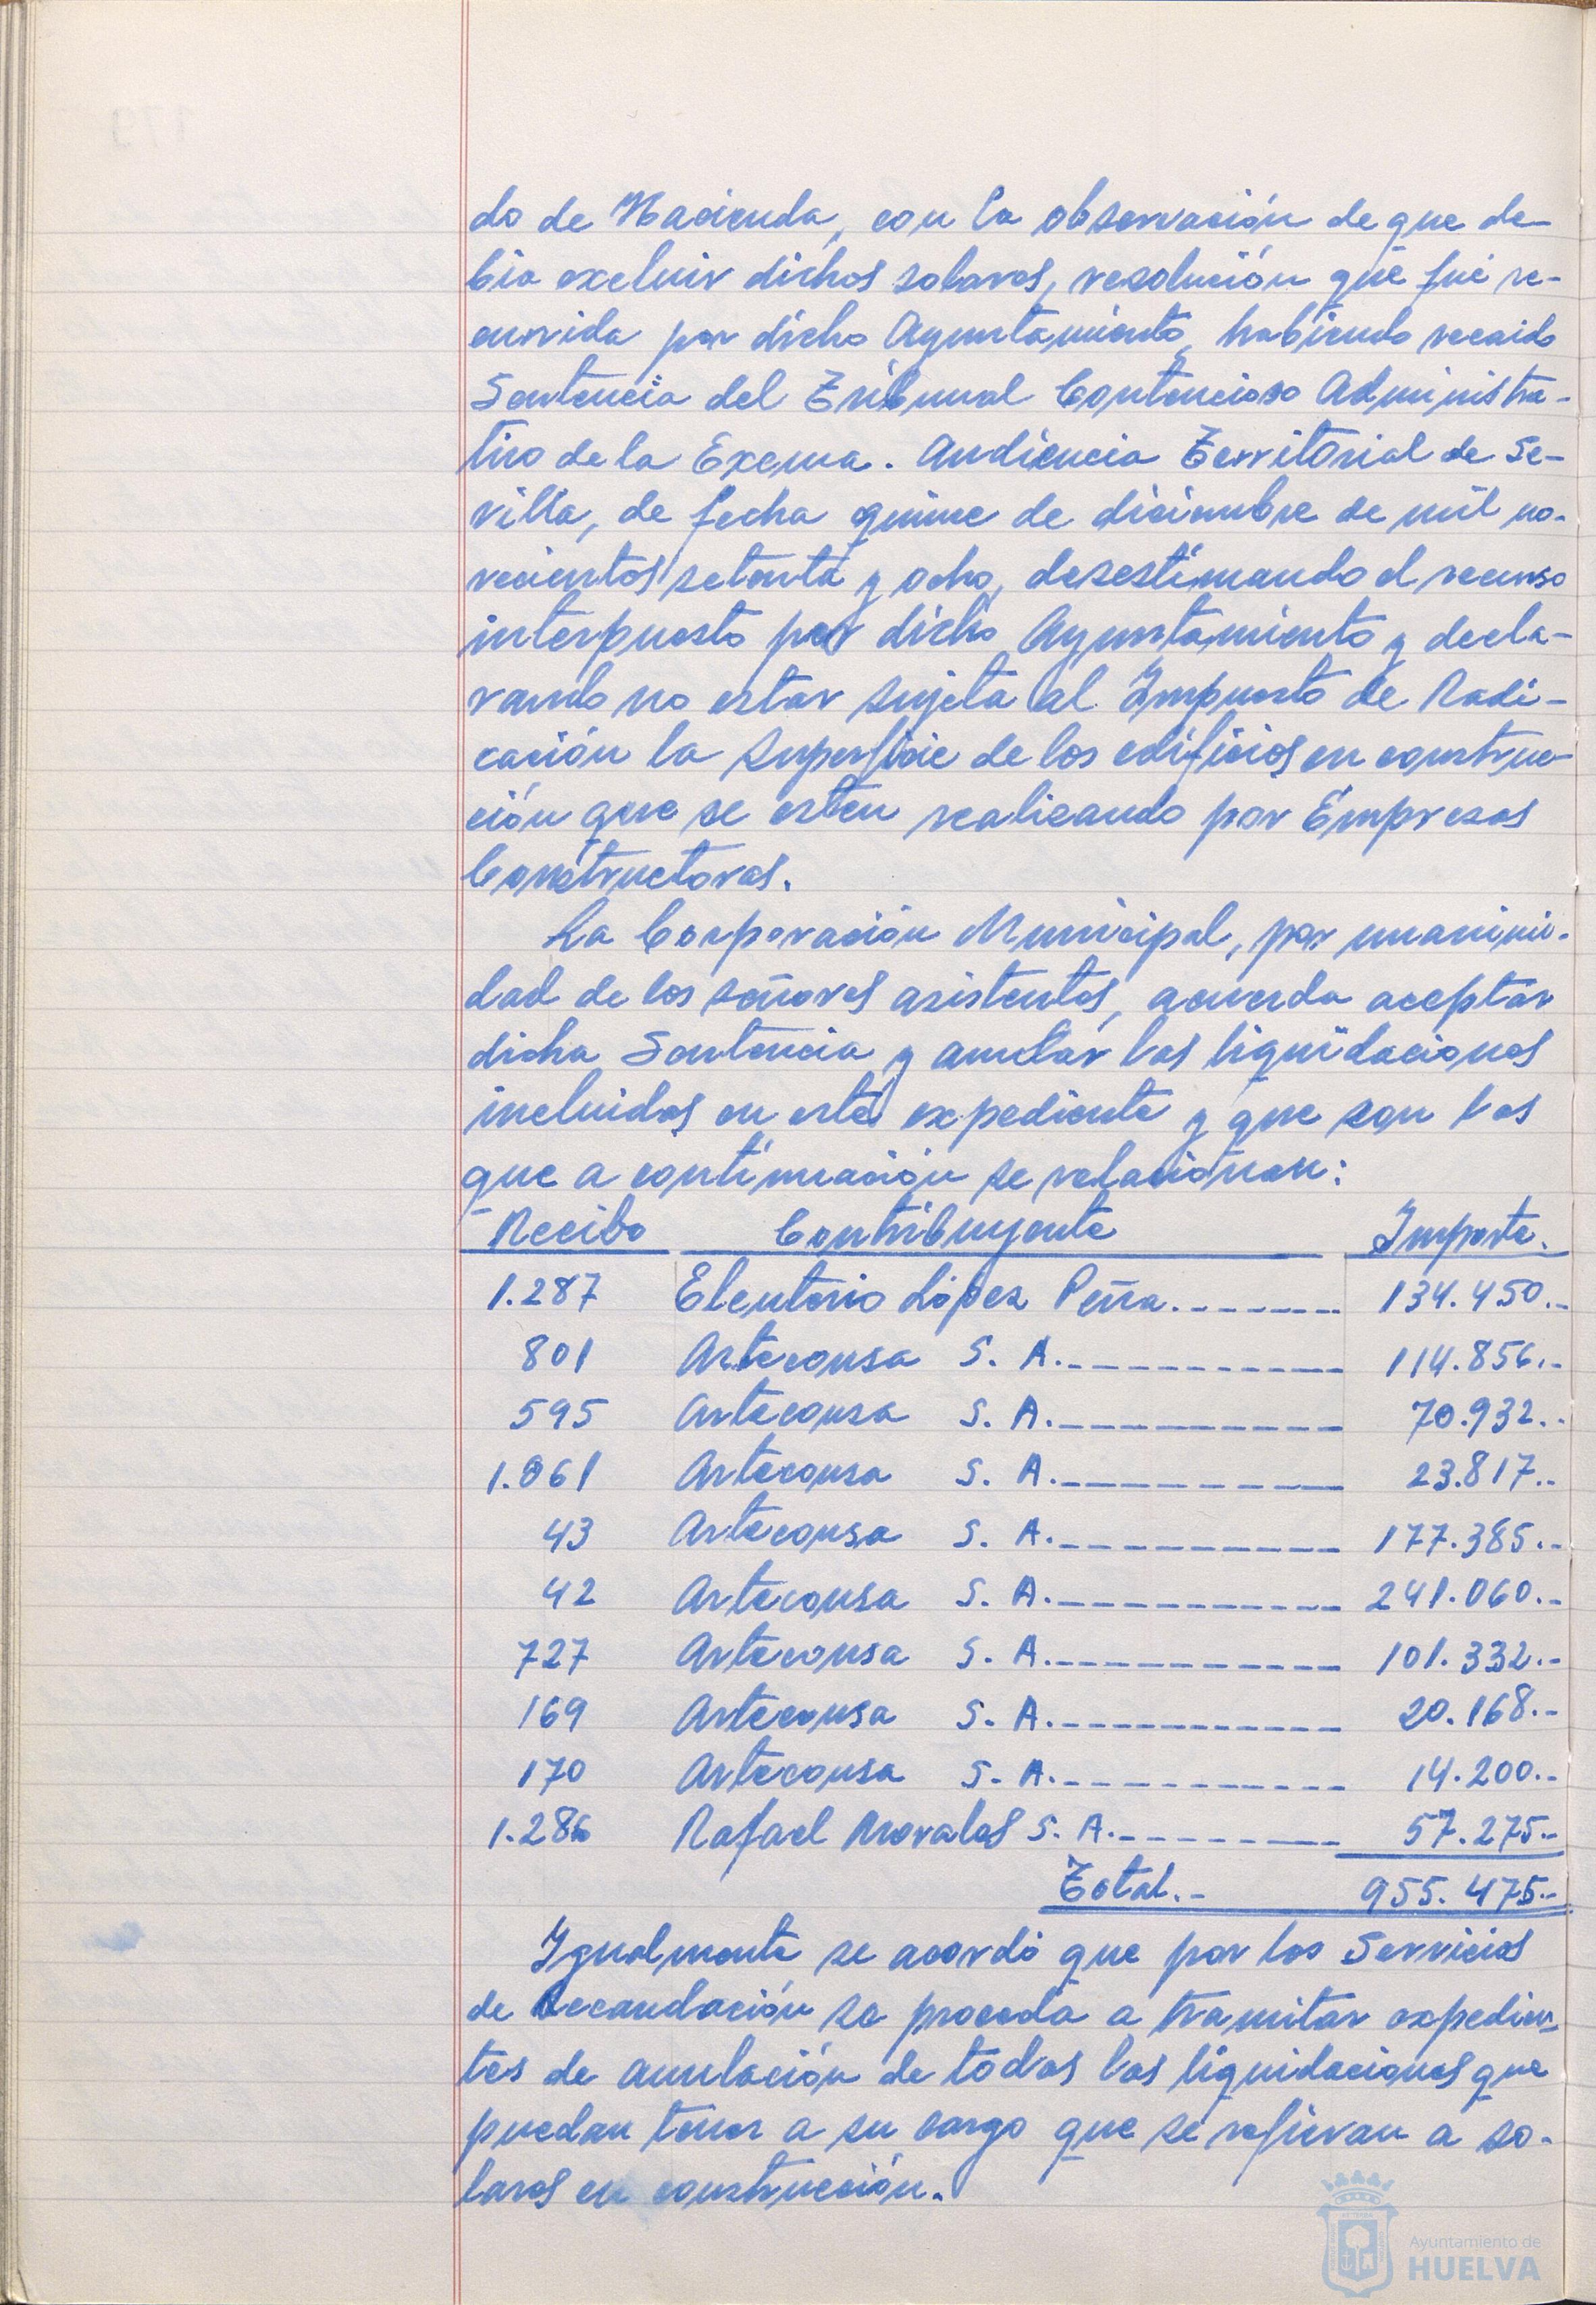 do de Hacienda, con la observación de que de-
bia excluir dichos solares, resolución que fué re-
currida por dicho Ayuntamiento, habiendo recaido
Sentencia del Tribunal Contencioso Administra-
tivo de la Excma. Audiencia Territorial de Se-
villa, de fecha quince de diciembre de mil no-
vecientos setenta y ocho, desestimando el recurso
interpuesto por dicho Ayuntamiento y decla-
rando no estar sujeta al Impuesto de Radi-
cación la superficie de los edificios en construc-
ción que se esten realizando por Empresas
Constructoras.
La Corporación Municipal, por unanimi-
dad de los señores asistentes, acuerda aceptar
dicha Sentencia y anular las liquidaciones
incluidas en este expediente y que son las
que a continuación se relacionan:
Recibo Contribuyente Importe.
1.287 Eleuterio López Peña.-------- 134.450.-
801 Arteconsa S. A.----------- 114.856.-
595 Arteconsa S. A.----------- 70.932.-
1.061 Arteconsa S. A.----------- 23.817.-
43 Arteconsa S. A.----------- 177.385.-
42 Arteconsa S. A.----------- 241.060.-
727 Arteconsa S. A.----------- 101.332.-
169 Arteconsa S. A.----------- 20.168.-
170 Arteconsa S. A.----------- 14.200.-
1.286 Rafael Morales S. A.--------- 57.275.-
Total.- 955.475.-
Igualmente se acordó que por los Servicios
de Recaudación se proceda a tramitar expedien-
tes de anulación de todas las liquidaciones que
puedan tener a su cargo que se refieran a so-
lares en construcción.
Ayuntamiento de
HUELVA